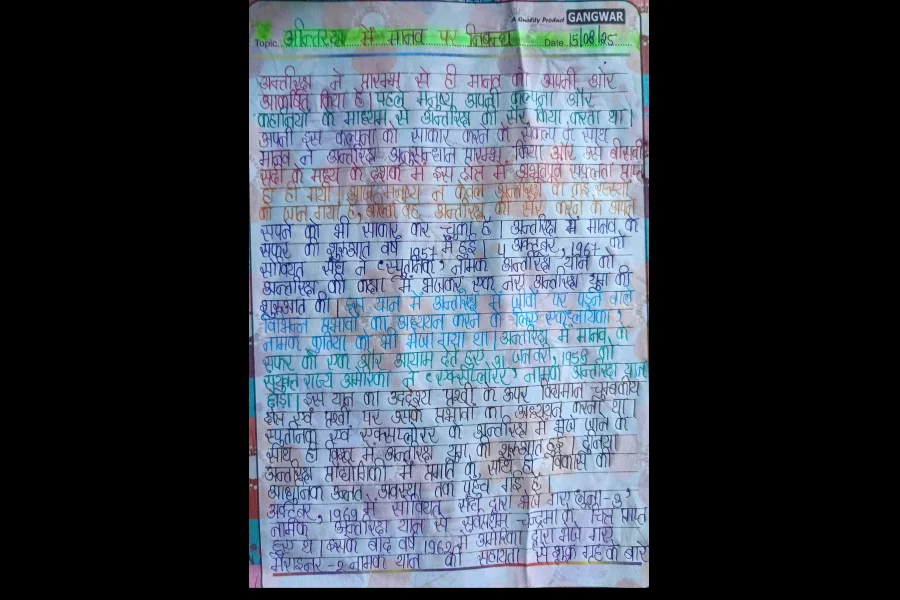 A Quality Product GANGWAR
Topic अन्तरिक्ष में मानव पर निबन्ध Date 15/08/25
अन्तरिक्ष ने प्रारम्भ से ही मानव को अपनी ओर
आकर्षित किया है। पहले मनुष्य अपनी कल्पना और
कहानियों के माध्यम से अन्तरिक्ष की सैर किया करता था।
अपनी इस कल्पना को साकार करने के संकल्प के साथ
मानव ने अन्तरिक्ष अनुसन्धान प्रारम्भ किया और उसे बीसवीं
सदी के मध्य के दशक में इस क्षेत्र में अभूतपूर्व सफलता प्राप्त
हो ही गयी। आज मनुष्य न केवल अन्तरिक्ष के कई रहस्यों
को जान गया है, बल्कि वह अन्तरिक्ष की सैर करने के अपने
सपने को भी साकार कर चुका है। अन्तरिक्ष में मानव के
सफर की शुरुआत वर्ष 1957 में हुई। 4 अक्टूबर, 1967 को
सोवियत संघ ने 'स्पुतनिक' नामक अन्तरिक्ष यान को
अन्तरिक्ष की कक्षा में भेजकर एक नए अन्तरिक्ष युग की
शुरुआत की। इस यान में अन्तरिक्ष में जीवों पर पड़ने वाले
विभिन्न प्रभावों का अध्ययन करने के लिए
नामक कुतिया को भी भेजा गया था। अन्तरिक्ष में मानव के
सफर को एक और आयाम देते हुए 31 जनवरी, 1958 को
संयुक्त राज्य अमेरिका ने 'एक्सप्लोरर' नामक अन्तरिक्ष यान
छोड़ा। इस यान का उद्देश्य पृथ्वी के ऊपर विद्यमान चुम्बकीय
क्षेत्र एवं पृथ्वी पर उसके प्रभावों का अध्ययन करना था।
स्पुतनिक एवं एक्सप्लोरर के अन्तरिक्ष में भेजे जाने के
साथ ही विश्व में अन्तरिक्ष युग की शुरुआत हुई दुनिया
अन्तरिक्ष प्रौद्योगिकी में प्रगति के साथ ही विकास की
आधुनिक उन्नत अवस्था तक पहुँच गई है
अक्टूबर, 1969 में सोवियत संघ द्वारा भेजे गए 'लूना-3'
नामक अन्तरिक्ष यान से सर्वप्रथम चन्द्रमा के चित्र प्राप्त
हुए थे। इसके बाद वर्ष 1962 में अमेरिका द्वारा भेजे गए
मैराइनर-2 नामक यान की सहायता से शुक्र ग्रह के बारे